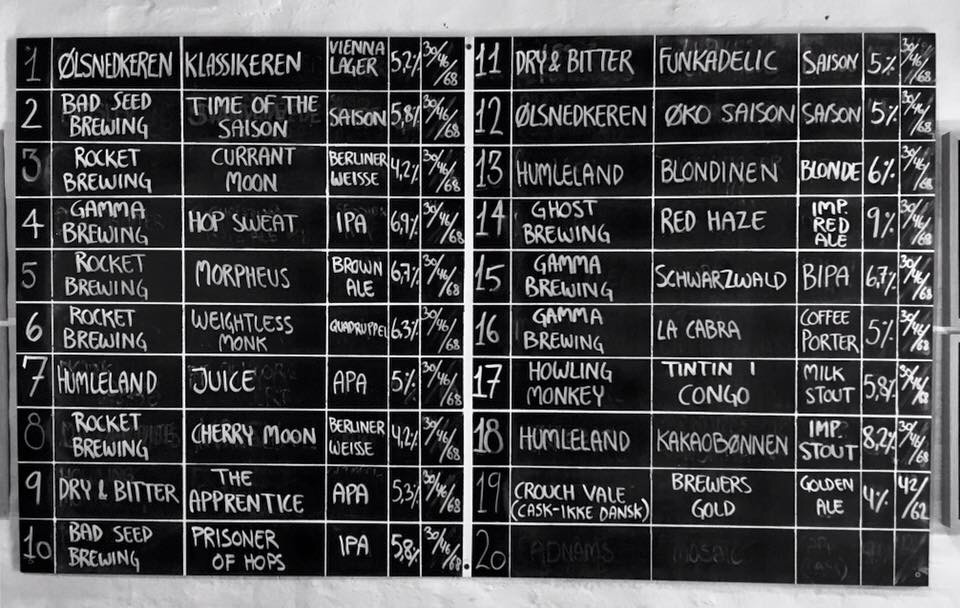 1 ØLSNEDKEREN KLASSIKEREN VIENNA LAGER 5,2% 30/46/68
2 BAD SEED BREWING TIME OF THE SAISON SAISON 5,8% 30/46/68
3 ROCKET BREWING CURRANT MOON BERLINER WEISSE 4,2% 30/46/68
4 GAMMA BREWING HOP SWEAT IPA 6,9% 30/46/68
5 ROCKET BREWING MORPHEUS BROWN ALE 6,7% 30/46/68
6 ROCKET BREWING WEIGHTLESS MONK QUADRUPPEL 6,3% 30/46/68
7 HUMLELAND JUICE APA 5% 30/46/68
8 ROCKET BREWING CHERRY MOON BERLINER WEISSE 4,2% 30/46/68
9 DRY & BITTER THE APPRENTICE APA 5,3% 30/46/68
10 BAD SEED BREWING PRISONER OF HOPS IPA 5,8% 30/46/68
11 DRY & BITTER FUNKADELIC SAISON 5% 30/46/68
12 ØLSNEDKEREN ØKO SAISON SAISON 5% 30/46/68
13 HUMLELAND BLONDINEN BLONDE 6% 30/46/68
14 GHOST BREWING RED HAZE IMP. RED ALE 9% 30/46/68
15 GAMMA BREWING SCHWARZWALD BIPA 6,7% 30/46/68
16 GAMMA BREWING LA CABRA COFFEE PORTER 5% 30/46/68
17 HOWLING MONKEY TINTIN I CONGO MILK STOUT 5,8% 30/46/68
18 HUMLELAND KAKAOBØNNEN IMP. STOUT 8,2% 30/46/68
19 CROUCH VALE (CASK-IKKE DANSK) BREWERS GOLD GOLDEN ALE 4% 42/62
20 ADNAMS MOSAIC